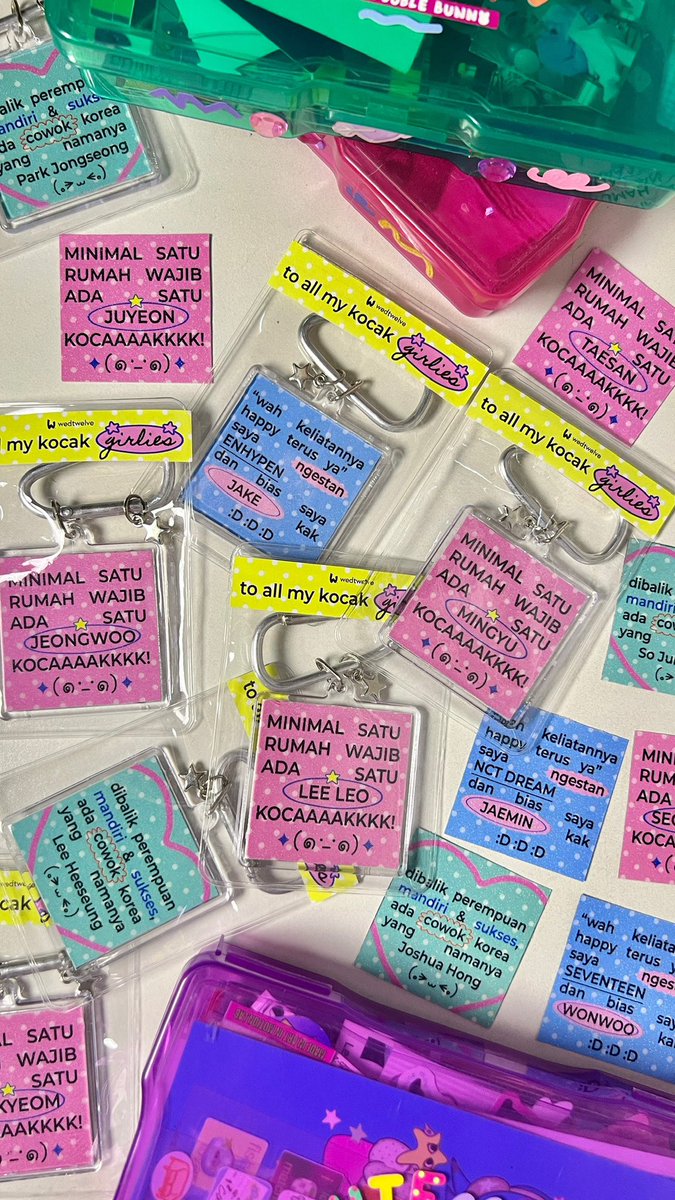 DOUBLE BUNN
dibalik perempuan
mandiri & sukses,
ada cowok korea
yang namanya
Park Jongseong
(｡•̀ ᴗ •́｡)
MINIMAL SATU
RUMAH WAJIB
ADA SATU
JUYEON
KOCAAAAKKKK!
(๑·̀–·́๑)
MINIMAL SATU
RUMAH WAJIB
ADA SATU
TAESAN
KOCAAAAKKKK!
(๑·̀–·́๑)
wedtwelve
to all my kocak girlies
"wah keliatannya
happy terus ya"
saya ngestan
ENHYPEN
dan bias saya
JAKE kak
:D :D :D
wedtwelve
all my kocak girlies
MINIMAL SATU
RUMAH WAJIB
ADA SATU
JEONGWOO
KOCAAAAKKKK!
(๑·̀–·́๑)
wedtwelve
to all my kocak girlies
MINIMAL SATU
RUMAH WAJIB
ADA SATU
MINGYU
KOCAAAAKKKK!
(๑·̀–·́๑)
wedtwelve
to all my kocak
MINIMAL SATU
RUMAH WAJIB
ADA SATU
LEE LEO
KOCAAAAKKKK!
(๑·̀–·́๑)
dibalik
mandiri
ada
yang
So Ju
keliatannya
happy terus ya"
saya ngestan
NCT DREAM
dan bias saya
JAEMIN kak
:D :D :D
MINI
RUMA
ADA
SEO
KOCA
to
dibalik perempuan
mandiri & sukses,
ada cowok korea
yang namanya
Lee Heeseung
dibalik perempuan
mandiri & sukses,
ada cowok korea
yang namanya
Joshua Hong
"wah keliata
happy terus
saya nges
SEVENTEEN
dan bias say
WONWOO kak
:D :D :D
wedtwelve
kocak
MINIMAL SATU
WAJIB
SATU
KYEOM
AAAAKKKK!
TE